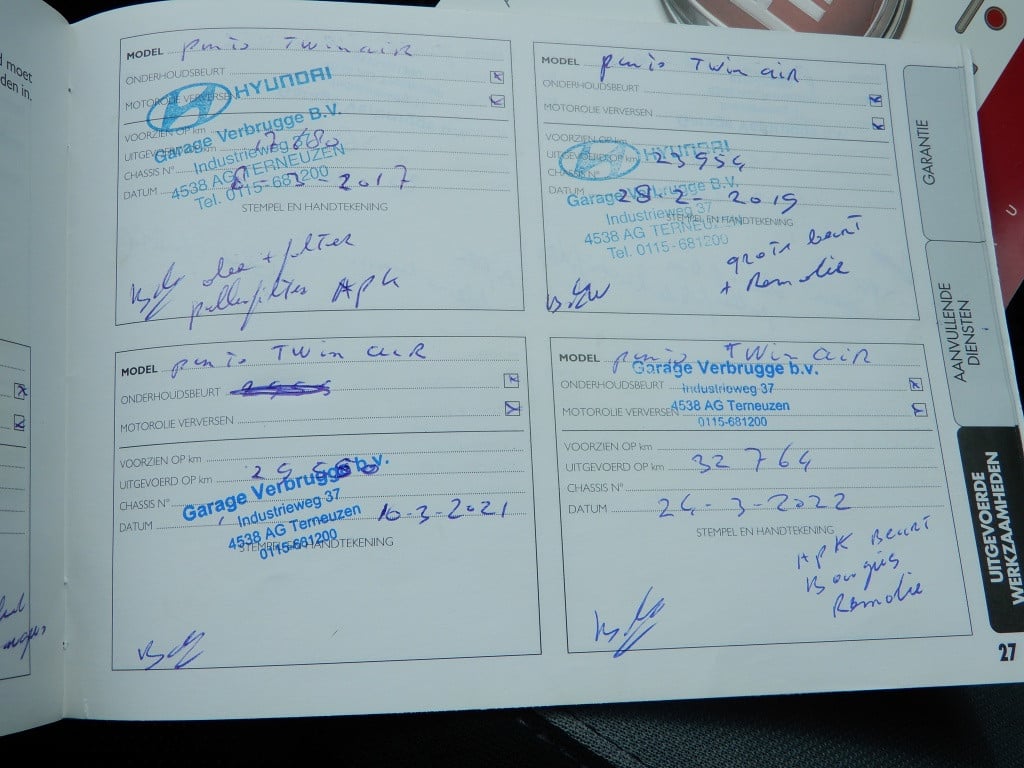 d moet
den in.
MODEL punto Twin air
ONDERHOUDSBEURT
MOTOROLIE VERVERSEN
HYUNDAI
VOORZIEN OP km
Garage Verbrugge B.V.
UITGEVOERD
Industrieweg
CHASSIS N°
4538 AG TERNEUZEN
DATUM 3-2017
Tel. 0115-681200
STEMPEL EN HANDTEKENING
olie + filter
pollenfilter APK
MODEL punto Twin air
ONDERHOUDSBEURT
MOTOROLIE VERVERSEN
VOORZIEN OP km
HYUNDAI
UITGEVOERD OP km 23954
CHASSIS N°
DATUM 28-2-2019
Garage Verbrugge B.V.
Industrieweg 37
STEMPEL EN HANDTEKENING
4538 AG TERNEUZEN
Tel. 0115-681200
grote beurt
+ Remolie
MODEL punto Twin air
ONDERHOUDSBEURT
MOTOROLIE VERVERSEN
VOORZIEN OP km
UITGEVOERD OP km
Garage Verbrugge b.v.
CHASSIS N°
Industrieweg 37
DATUM 10-3-2021
4538 AG Terneuzen
STEMPEL EN HANDTEKENING
0115-681200
MODEL punto Twin air
Garage Verbrugge b.v.
ONDERHOUDSBEURT
Industrieweg 37
MOTOROLIE VERVERSEN
4538 AG Terneuzen
0115-681200
VOORZIEN OP km
UITGEVOERD OP km 32764
CHASSIS N°
DATUM 24-3-2022
STEMPEL EN HANDTEKENING
APK Beurt
Bougies
Remolie
GARANTIE
AANVULLENDE
DIENSTEN
UITGEVOERDE
WERKZAAMHEDEN
27